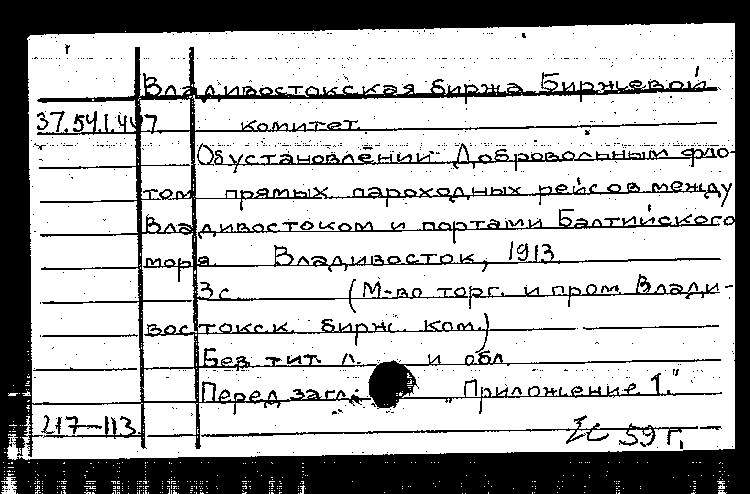 Владивостокская биржа Биржевой
37.54.1.447. комитет.
Об установлении Добровольным фло-
том прямых пароходных рейсов между
Владивостоком и портами Балтийского
моря. Владивосток, 1913
3с. (М-во торг. и пром. Влади-
востокск. бирж. ком.)
Без тит. л. и обл.
Перед загл.: „Приложение 1."
217-113 59 г.